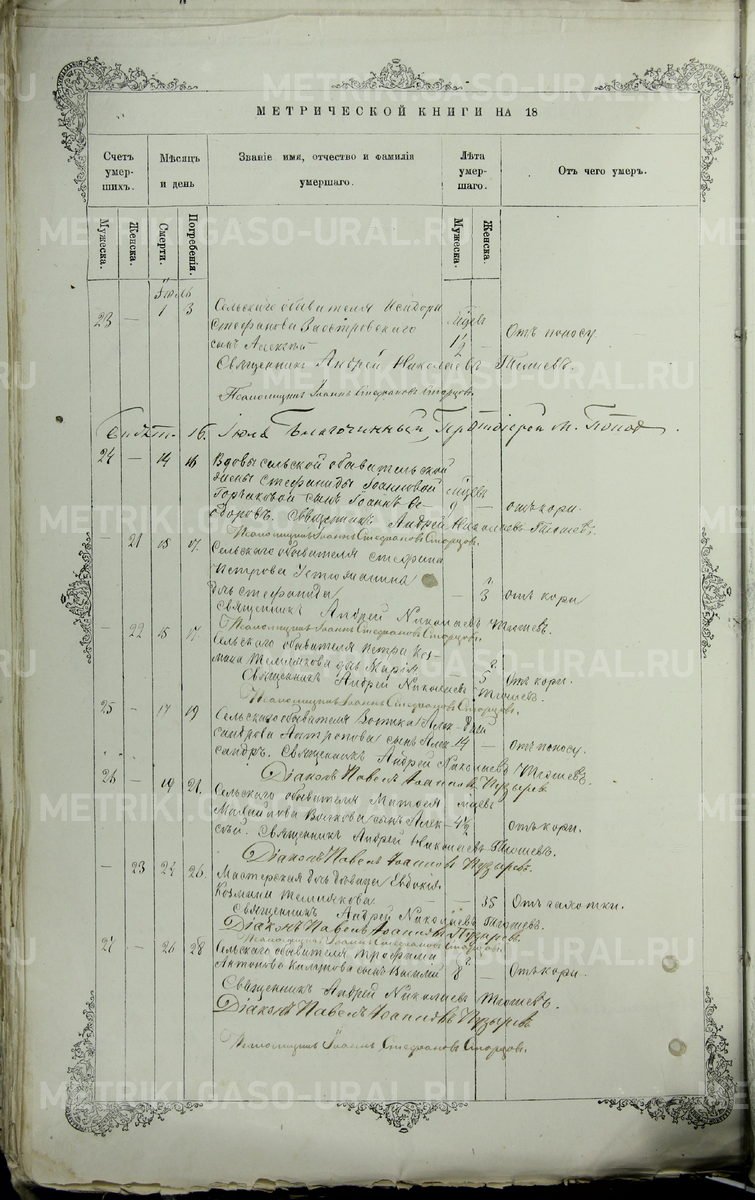 МЕТРИЧЕСКОЙ КНИГИ НА 18
Счетъ умер- шихъ.
Мѣсяцъ и день
Званіе имя, отчество и фамилія умершаго.
Лѣта умер- шаго.
Отъ чего умеръ.
Мужеска. Женска. Смерти. Погребенія. Мужеска. Женска.
Іюль
23 — 1 3 Сельскаго обывателя Исидора мѣсяц.
Стефанова сынъ 1½ — Отъ поносу.
Священникъ Андрей Николаевъ
Псаломщикъ Іоаннъ Стефановъ
16. Іюля Благочинный, Протоіерей М. Поповъ.
24 — 14 16 Вдовы сельской обывательской
жены Стефаниды Іоанновой
сынъ Іоаннъ Ѳе- 9 — отъ кори.
доровъ. Священникъ Андрей Николаевъ
Псаломщикъ Іоаннъ Стефановъ
— 21 15 17. Сельскаго обывателя
Петрова Устюжанина
дчь Стефанида — 3 отъ кори
Священникъ Андрей Николаевъ
Псаломщикъ Іоаннъ Стефановъ
— 22 15 17. Сельскаго обывателя Петра Коз-
мина Темлякова дчь Марія — 5 Отъ кори.
Священникъ Андрей Николаевъ
Псаломщикъ Іоаннъ Стефановъ
25 — 17 19 Сельскаго обывателя Алек- дней
сандрова Антропова сынъ Алек- 14 — Отъ поносу.
сандръ. Священникъ Андрей Николаевъ
Діаконъ Павелъ Іоанновъ Пузыревъ
26 — 19 21. Сельскаго обывателя Матѳея
Михайлова Волкова сынъ Алек- 4½ — отъ кори.
сѣй. Священникъ Андрей Николаевъ
Діаконъ Павелъ Іоанновъ Пузыревъ.
— 23 24 26. Мастерская дчь дѣвица Евдокія
Козмина Темлякова — 35 Отъ чахотки.
Священникъ Андрей Николаевъ
Діаконъ Павелъ Іоанновъ Пузыревъ.
Псаломщикъ Іоаннъ Стефановъ
27 — 26 28 Сельскаго обывателя Трофима
Антонова сынъ Василій 8 — Отъ кори.
Священникъ Андрей Николаевъ
Діаконъ Павелъ Іоанновъ Пузыревъ
Псаломщикъ Іоаннъ Стефановъ
METRIKI.GASO-URAL.RU